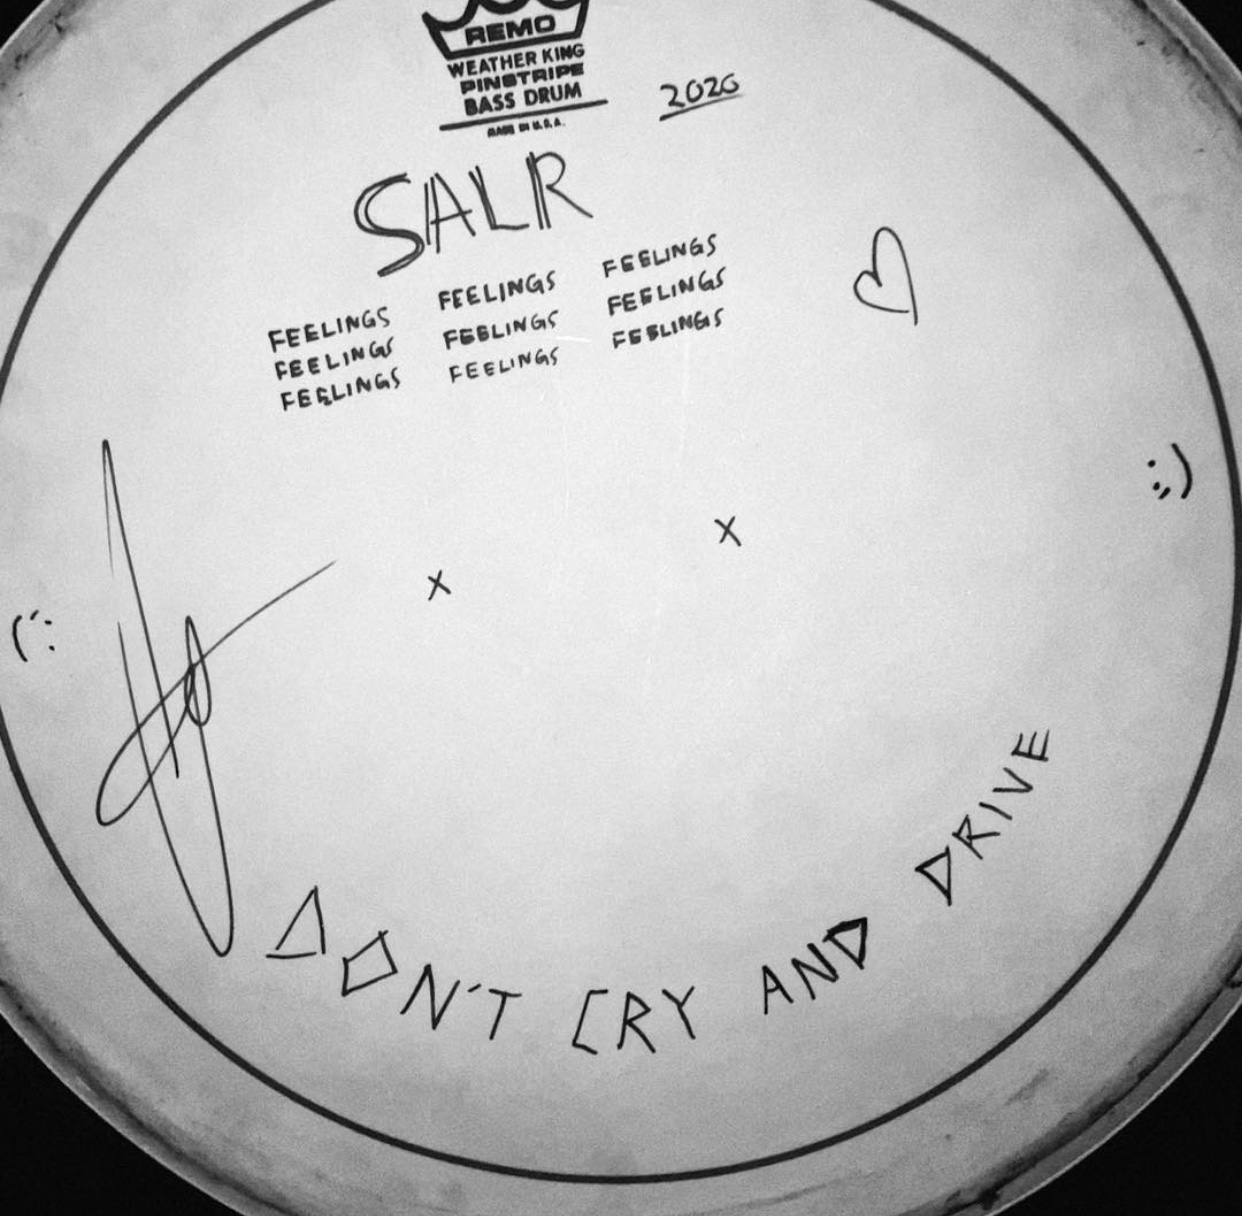 REMO
WEATHER KING
PINSTRIPE
BASS DRUM
MADE IN U.S.A.
2020
SALR
FEELINGS FEELINGS FEELINGS
FEELINGS FEELINGS FEELINGS
FEELINGS FEELINGS FEELINGS
:;)
(;:
X X
DON'T CRY AND DRIVE